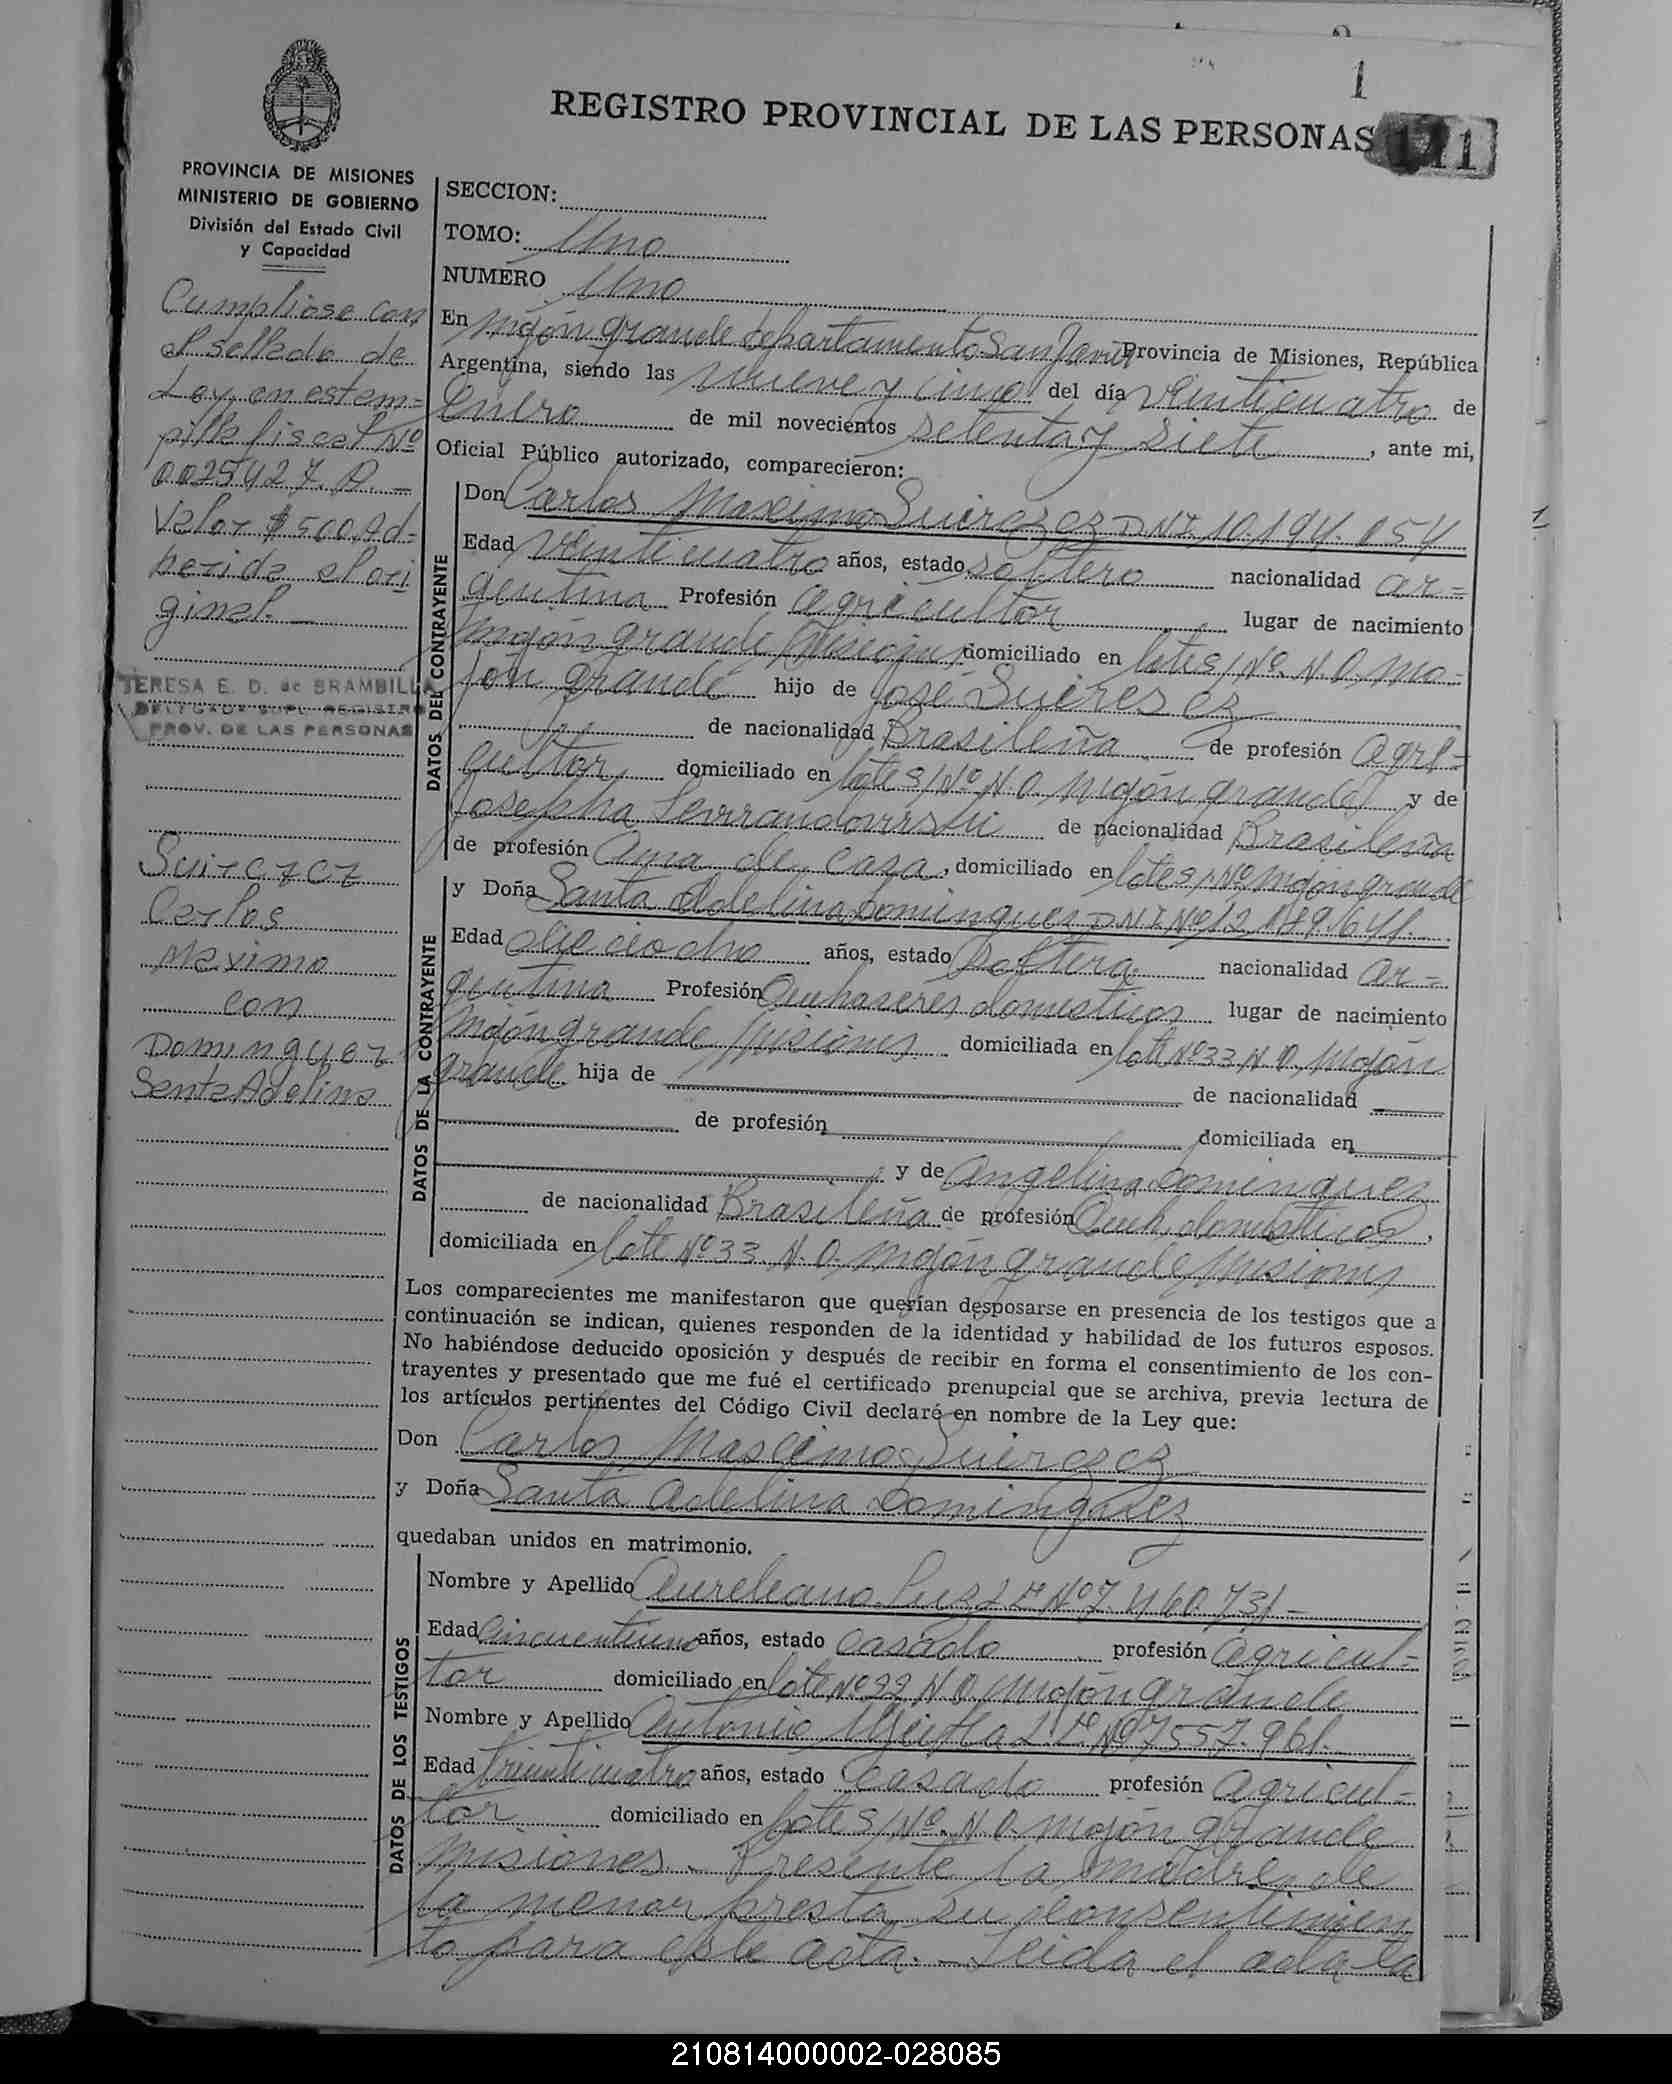 1
REGISTRO PROVINCIAL DE LAS PERSONAS
PROVINCIA DE MISIONES
MINISTERIO DE GOBIERNO
División del Estado Civil
y Capacidad
Cumpliose con
el sellado de
Ley, en estam=
pilla fiscal Nº
0025427. A. —
Valor $ 500, Ad=
herida al ori
ginal. —
TERESA E. D. de BRAMBILLA
DELEGADA SUPL. REGISTRO
PROV. DE LAS PERSONAS
Suirezez
Carlos
Maximo
con
Dominguez
Santa Adelina
SECCION:
TOMO: Uno
NUMERO Uno
En Mojón grande departamento San Javier Provincia de Misiones, República
Argentina, siendo las nueve y cinco del día veinticuatro de
Enero de mil novecientos setenta y siete, ante mi,
Oficial Público autorizado, comparecieron:
DATOS DEL CONTRAYENTE
Don Carlos Maximo Suirezez D.N.I. 10.194.054
Edad veinticuatro años, estado soltero nacionalidad ar=
gentina Profesión agricultor lugar de nacimiento
Mojón grande Misiones domiciliado en lote s/Nº. N.O. Mo-
jón grande hijo de José Suiresez
de nacionalidad Brasileña de profesión agri=
cultor domiciliado en lote s/Nº N.O. Mojón grande y de
Josepha de nacionalidad Brasileña
de profesión Ama de casa, domiciliado en lote s/Nº Mojón grande
DATOS DE LA CONTRAYENTE
y Doña Santa Adelina Dominguez D.N.I. Nº
Edad dieciocho años, estado soltera nacionalidad ar=
gentina Profesión Quehaceres domesticos lugar de nacimiento
Mojón grande Misiones domiciliada en lote Nº33 N.O. Mojón
grande hija de de nacionalidad
de profesión domiciliada en
y de Angelina Dominguez
de nacionalidad Brasileña de profesión Queh. domésticos,
domiciliada en lote Nº33. N.O. Mojón grande Misiones
Los comparecientes me manifestaron que querían desposarse en presencia de los testigos que a
continuación se indican, quienes responden de la identidad y habilidad de los futuros esposos.
No habiéndose deducido oposición y después de recibir en forma el consentimiento de los con-
trayentes y presentado que me fué el certificado prenupcial que se archiva, previa lectura de
los artículos pertinentes del Código Civil declaré en nombre de la Ley que:
Don Carlos Maximo Suirezez
y Doña Santa Adelina Dominguez
quedaban unidos en matrimonio.
DATOS DE LOS TESTIGOS
Nombre y Apellido Aureleano L.E. Nº 7.460.731-
Edad Cincuentiuno años, estado casado profesión agricul=
tor domiciliado en lote Nº22 N.O. Mojón grande
Nombre y Apellido Antonio L.E. Nº 7557.961.
Edad treinticuatro años, estado casado profesión agricul=
tor domiciliado en lote s/Nº. N.O. Mojón grande
Misiones. Presente la madre de
la menor presta su consentimien
to para este acta. - Leida el acta la
210814000002-028085